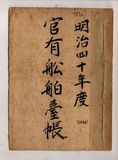 明治四十年度
官有船舶臺帳